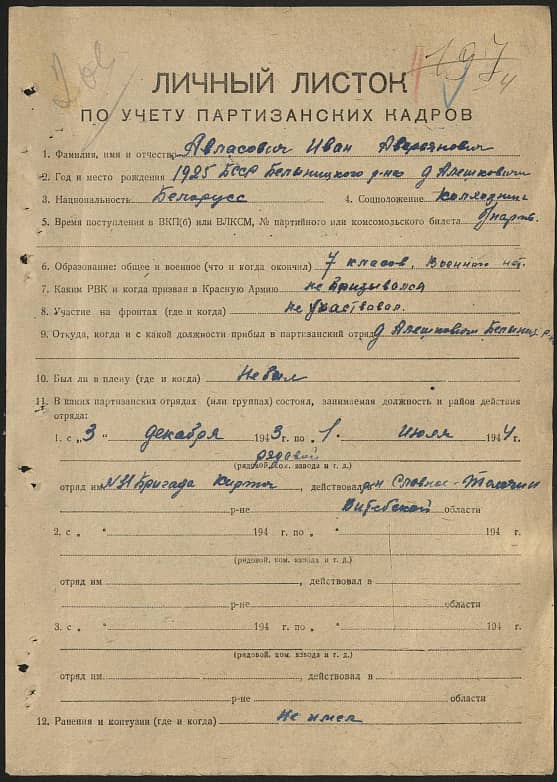 197
4
ЛИЧНЫЙ ЛИСТОК
ПО УЧЕТУ ПАРТИЗАНСКИХ КАДРОВ
1. Фамилия, имя и отчество Авласович Иван Аверьянович
2. Год и место рождения 1925 БССР Белыничского р-на д Алешковичи
3. Национальность Беларусс 4. Соцположение Колхозник
5. Время поступления в ВКП(б) или ВЛКСМ, № партийного или комсомольского билета б/парт.
6. Образование: общее и военное (что и когда окончил) 7 класов, Военного нет.
7. Каким РВК и когда призван в Красную Армию не призывался
8. Участие на фронтах (где и когда) не участвовал.
9. Откуда, когда и с какой должности прибыл в партизанский отряд д Алешковичи Белынич р-на
10. Был ли в плену (где и когда) Не был
11. В каких партизанских отрядах (или группах) состоял, занимаемая должность и район действия
отряда:
1. с „3 “ декабря 1943 г. по „1. “ Июля 1944 г.
рядовой
(рядовой, ком. взвода и т. д.)
отряд им №31 Бригада Кирпич, действовал в рн Славное-Толочин
р-не Витебской области
2. с „ “ 194 г. по „ “ 194 г.
(рядовой, ком. взвода и т. д.)
отряд им , действовал в
р-не области
3. с „ “ 194 г. по „ “ 194 г.
(рядовой, ком. взвода и т. д.)
отряд им , действовал в
р-не области
12. Ранения и контузии (где и когда) Не имел